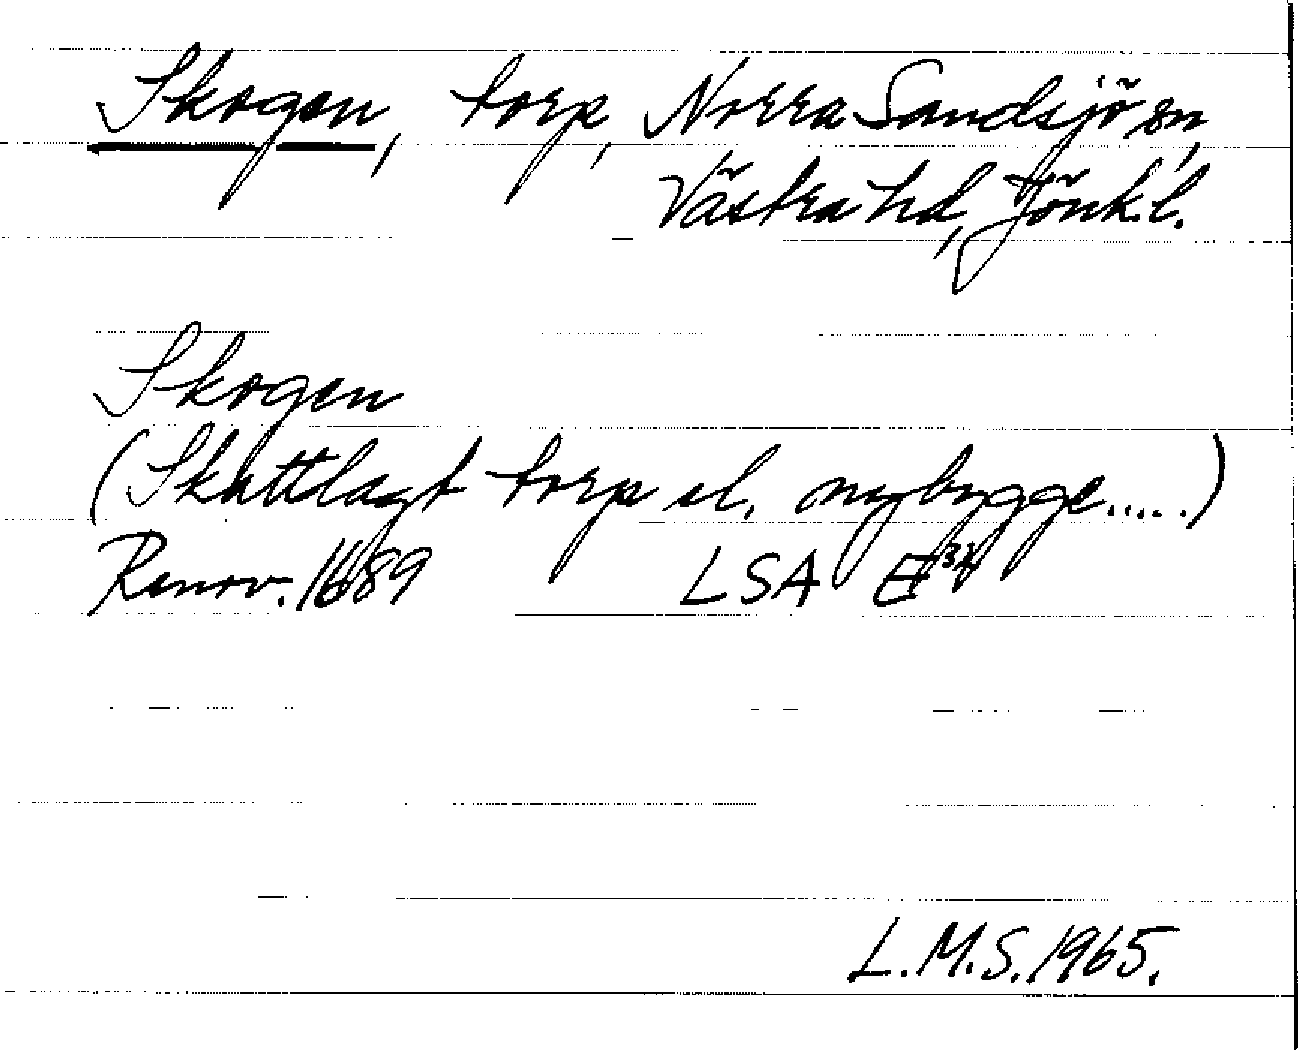 Skogen, torp, Norra Sandsjö sn,
Västra hd, Jönk.l.
Skogen
(Skattlagt torp el. nybygge.....)
Renov. 1689 LSA E³⁴
L.M.S. 1965.